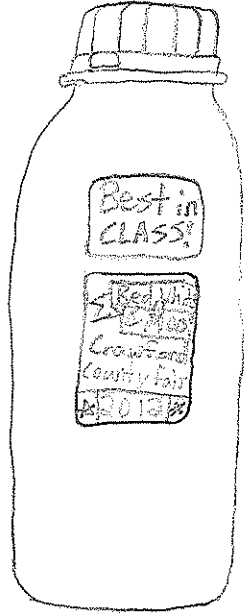 Best in
CLASS!
Red, White
Crawford
County Fair
2012